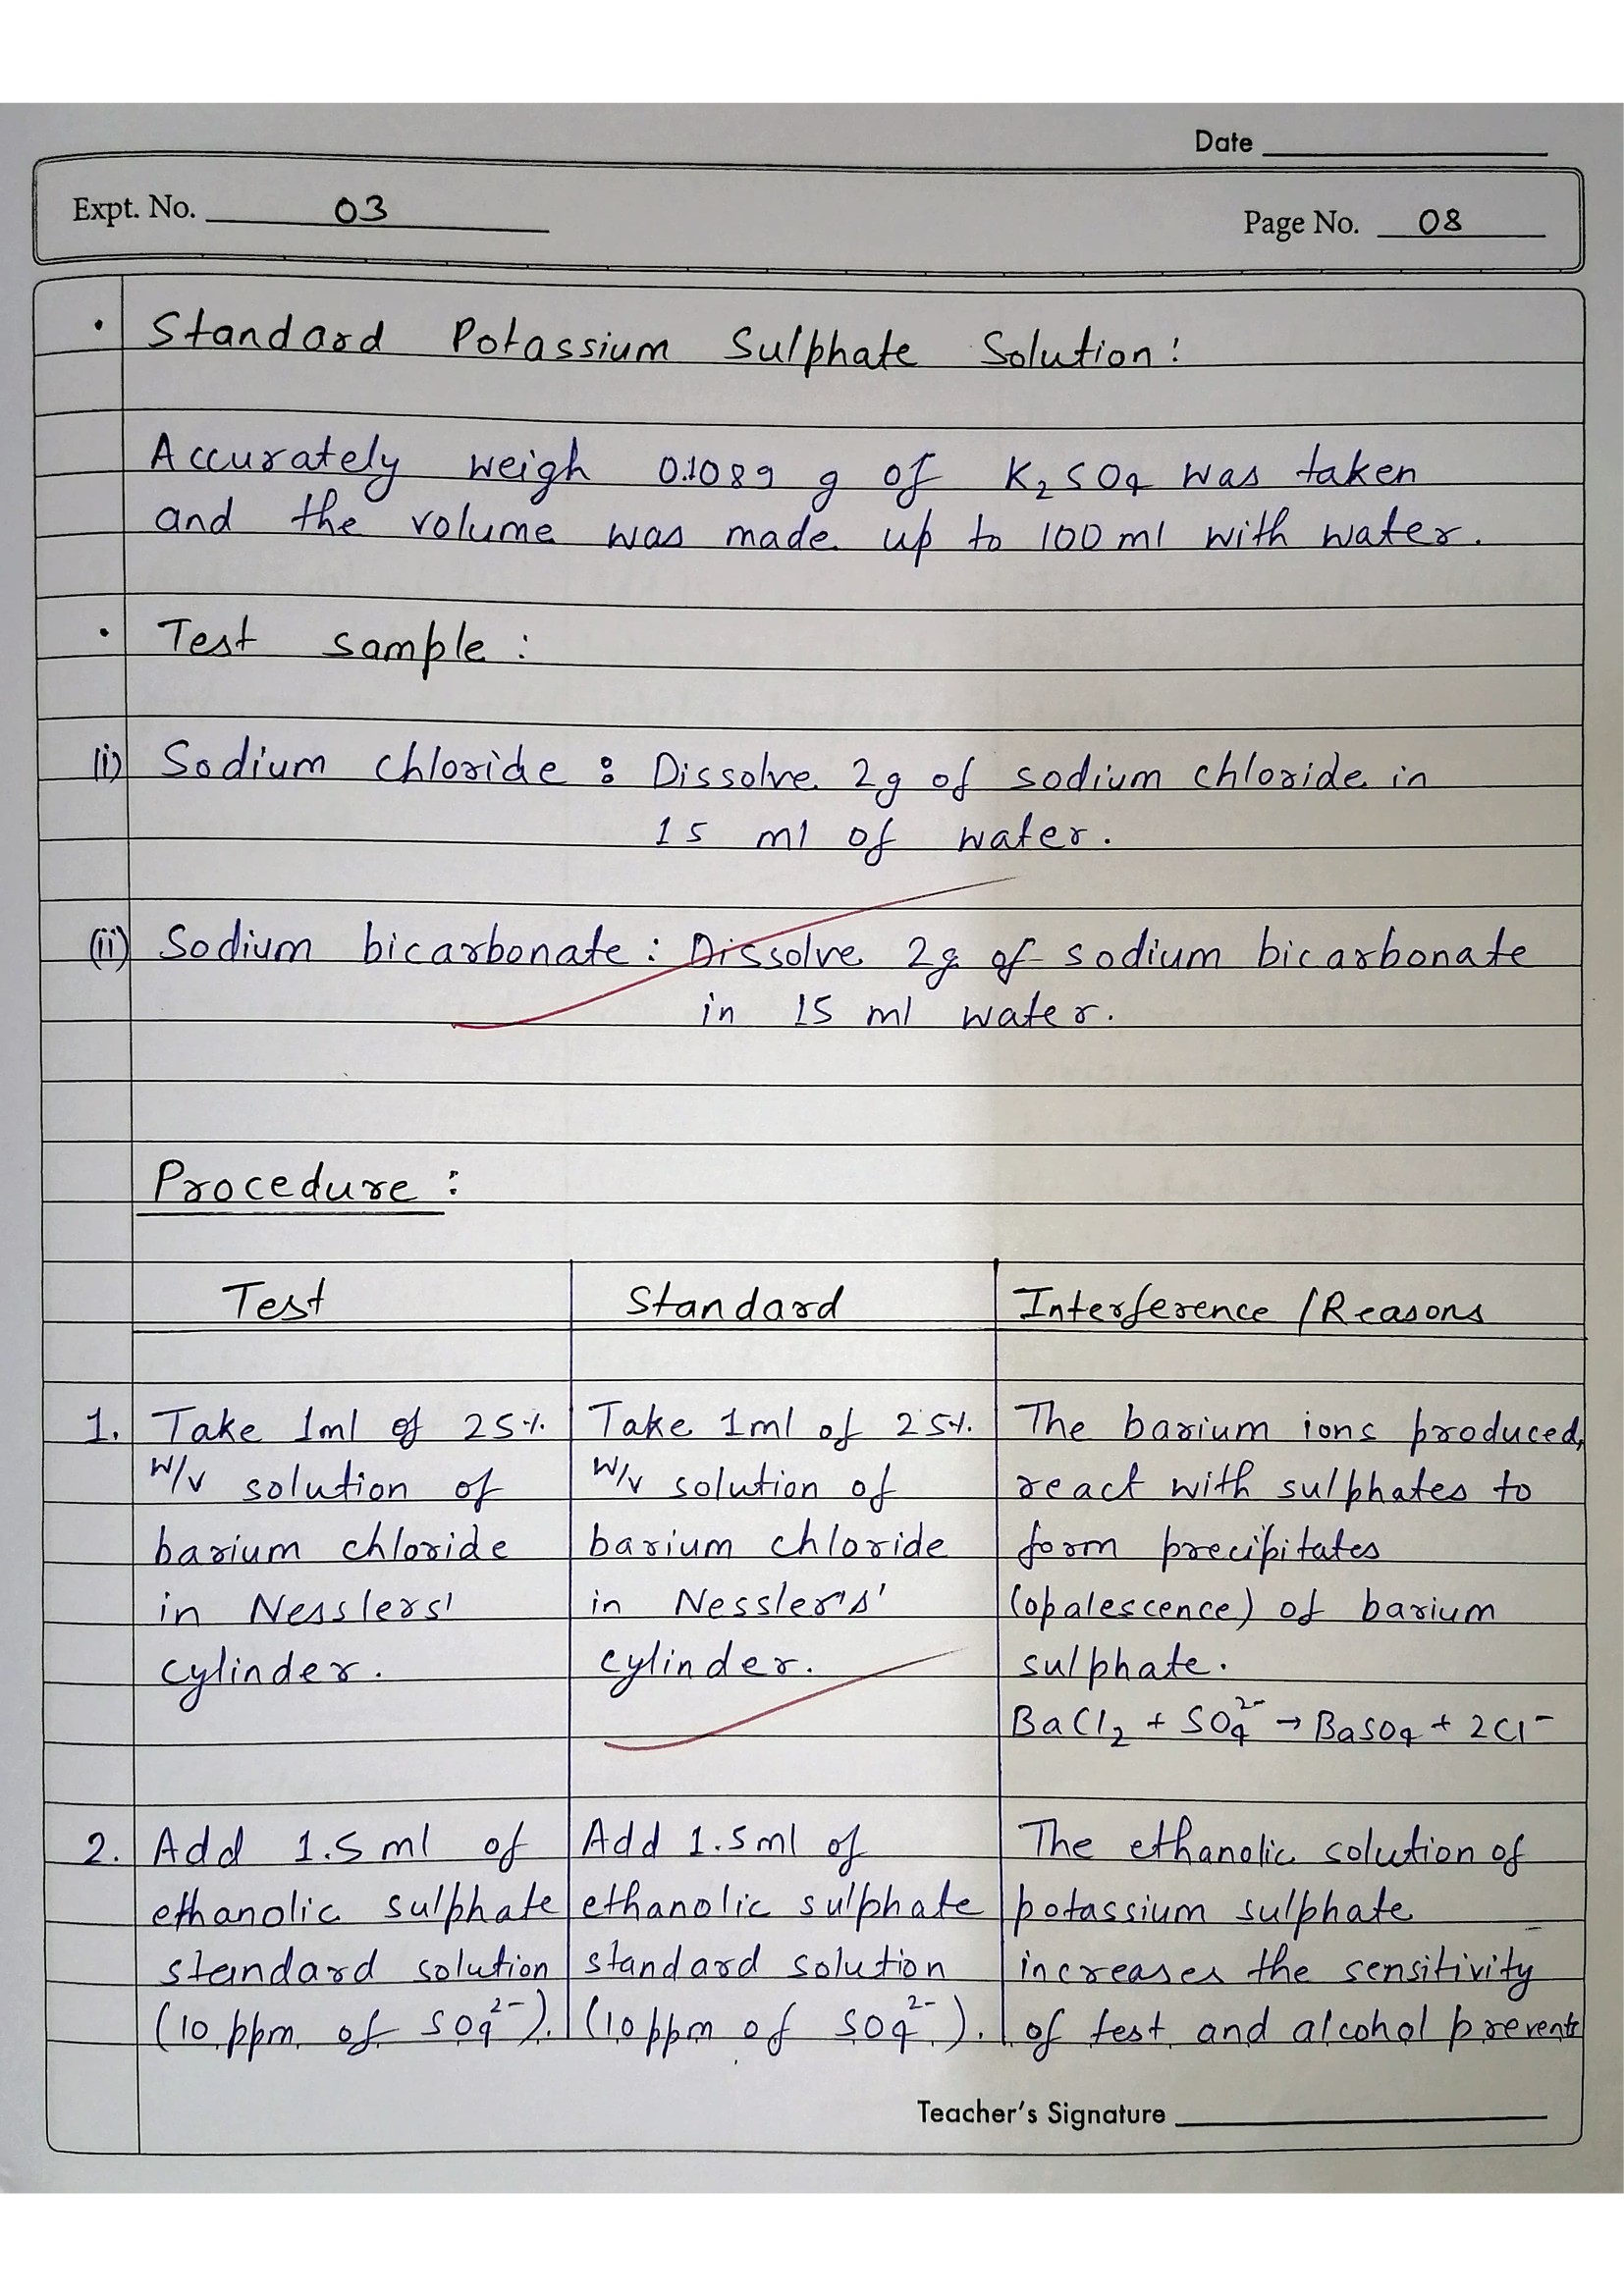 Date
Expt. No. 03
Page No. 08
• Standard Potassium Sulphate Solution:
Accurately weigh 0.1089 g of K₂SO₄ was taken
and the volume was made up to 100 ml with water.
• Test sample :
(i) Sodium chloride : Dissolve 2g of sodium chloride in
15 ml of water.
(ii) Sodium bicarbonate : Dissolve 2g of sodium bicarbonate
in 15 ml water.
Procedure :
Test Standard Interference / Reasons
1. Take 1ml of 25% Take 1ml of 25% The barium ions produced,
w/v solution of w/v solution of react with sulphates to
barium chloride barium chloride form precipitates
in Nesslers' in Nessler's' (opalescence) of barium
cylinder. cylinder. sulphate.
BaCl₂ + SO₄²⁻ → BaSO₄ + 2Cl⁻
2. Add 1.5 ml of Add 1.5ml of The ethanolic solution of
ethanolic sulphate ethanolic sulphate potassium sulphate
standard solution standard solution increases the sensitivity
(10 ppm of SO₄²⁻). (10 ppm of SO₄²⁻). of test and alcohol prevents
Teacher's Signature